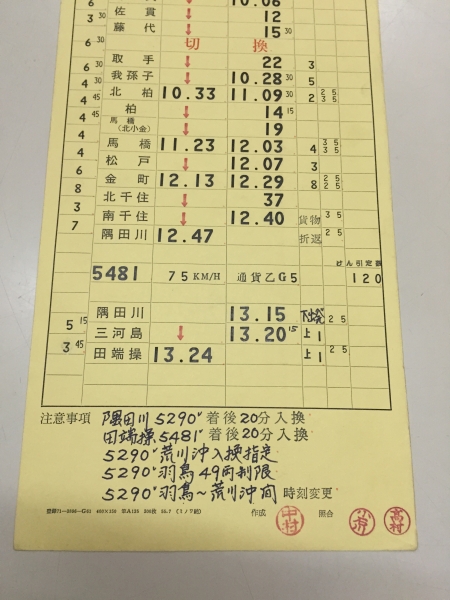 6 ↓ 10.06
3 30 佐貫 ↓ 12
藤代 ↓ 15 30
6 30 切換
取手 ↓ 22 3
3 30 我孫子 ↓ 10.28 30 5
4 30 北柏 10.33 11.09 30 2 2 5 3 5
4 45 柏 ↓ 14 15
4 45 馬橋(北小金) ↓ 19
馬橋 11.23 12.03 4 3 5 3 5
4 松戸 ↓ 12.07 3
6 金町 12.13 12.29 8 2 5 2 5
8 北千住 ↓ 37
3 南千住 ↓ 12.40 貨物 3 5
7 隅田川 12.47 折返 2 5
けん引定数
5481 75 KM/H 通貨乙G5 120
隅田川 13.15 下出発 2 5
5 15 三河島 ↓ 13.20 15 上1
3 45 田端操 13.24 上1 2 5
注意事項 隅田川 5290 着後20分入換
田端操 5481 着後20分入換
5290 荒川沖入換指定
5290 羽鳥 49両制限
5290 羽鳥～荒川沖間 時刻変更
作成 中村 照合 高村